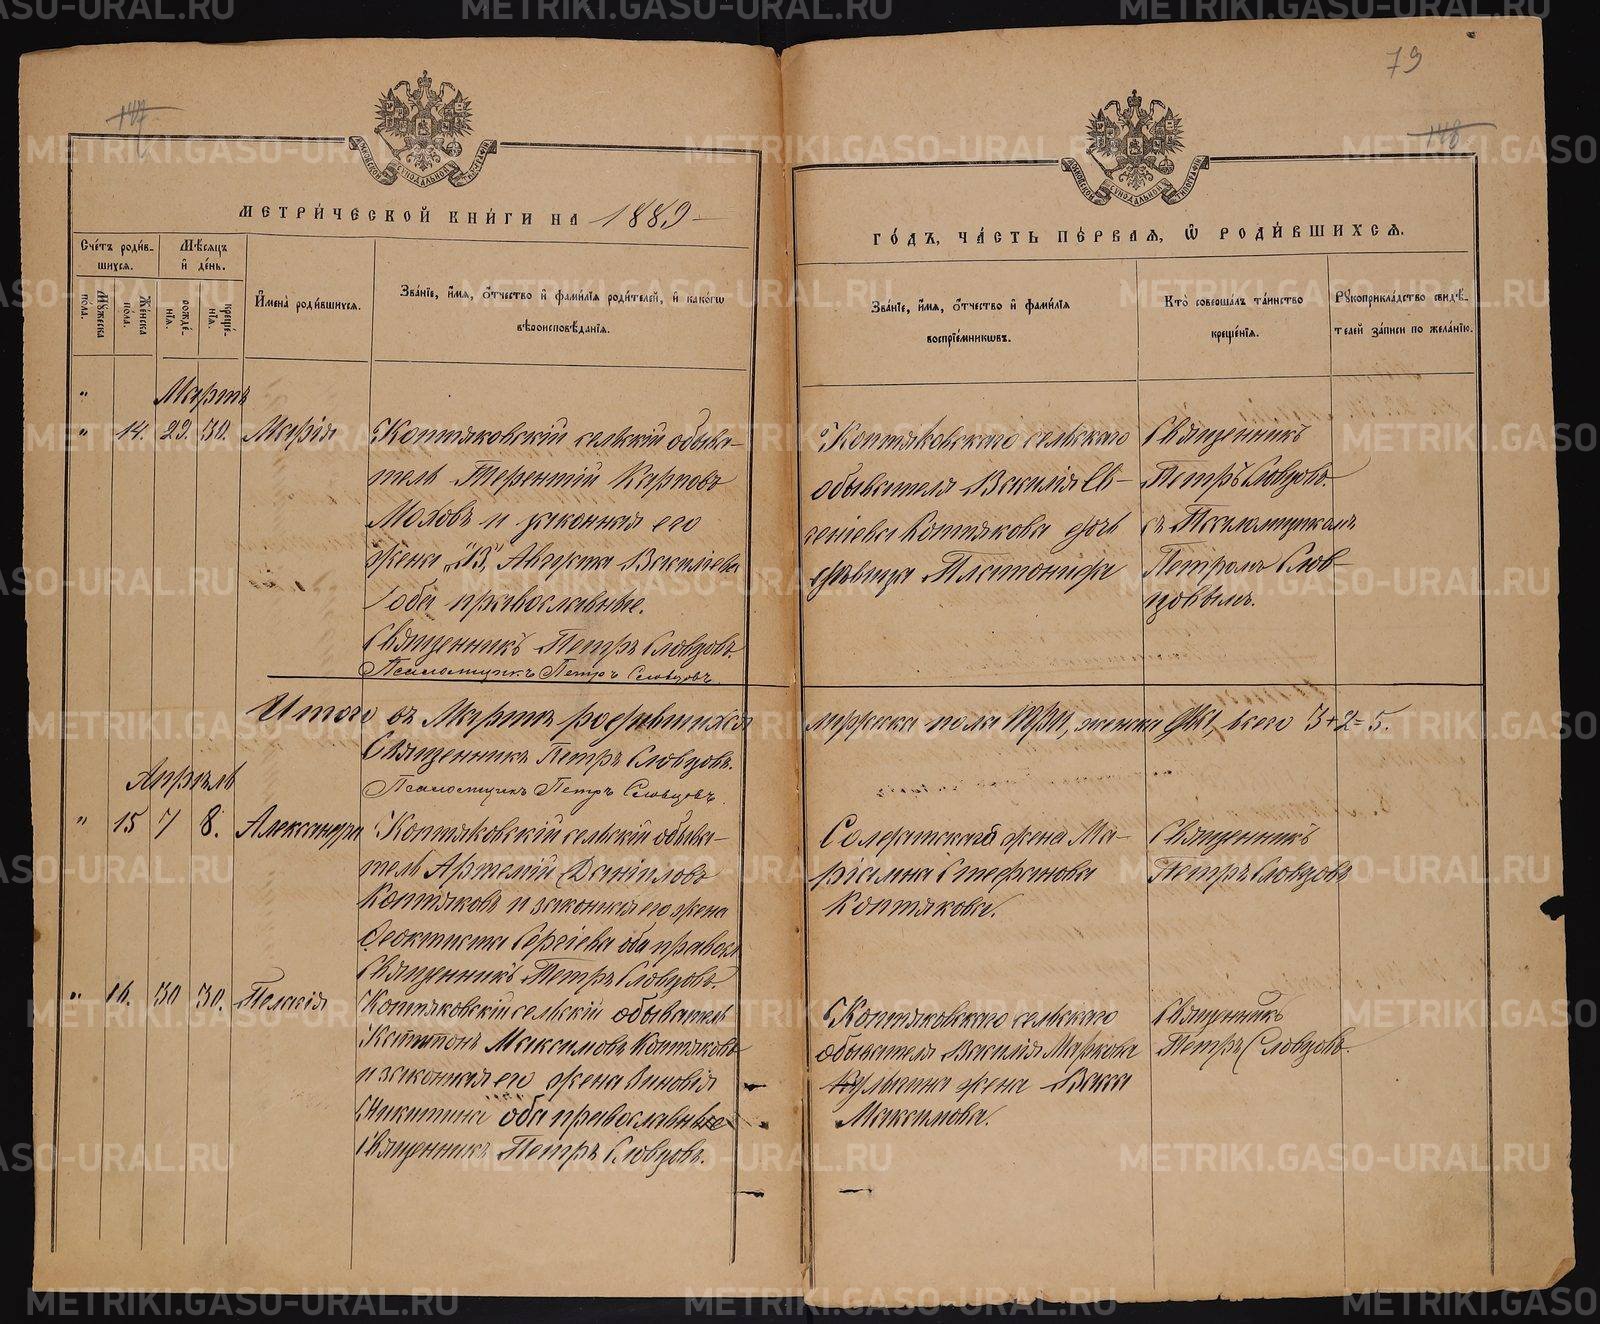 79
147
148
МОСКОВСКОЙ СУНОДАЛЬНОЙ ТИПОГРАФІИ
МОСКОВСКОЙ СУНОДАЛЬНОЙ ТИПОГРАФІИ
МЕТРИ́ЧЕСКОЙ КНИ́ГИ НА 1889
ГО́ДЪ, ЧА́СТЬ ПЕ́РВАЯ, Ѿ РОДИ́ВШИХСЯ.
Сче́тъ роди́в-
шихся.
Мѣ́сяцъ
и҆ де́нь.
Му́жеска
по́ла.
Же́нска
по́ла.
рожде́-
нія.
креще́-
нія.
И҆мена̀ роди́вшихся.
Зва́ніе, и҆́мя, ѻ҆́тчество и҆ фами́лія роди́телей, и҆ како́гѡ
вѣроисповѣ́данія.
Зва́ніе, и҆́мя, ѻ҆́тчество и҆ фами́лія
воспріе́мникѡвъ.
Кто̀ соверша́лъ та́инство
креще́нія.
Рукоприкла́дство свидѣ́-
телей за́писи по жела́нію.
Мартъ
" 14. 29. 30. Марія
Коптяковскій сельскій обыва-
тель Терентій Карповъ
Моховъ и законная его
жена „В„ Августа Василіева
оба православные.
Священникъ Петръ Словцовъ.
Псаломщикъ Петръ Словцовъ.
Коптяковскаго сельскаго
обывателя Василія Ев-
геніева Коптякова дочь
дѣвица Платонида
Священникъ
Петръ Словцовъ.
съ Псаломщикомъ
Петромъ Слов-
цовымъ.
Итого въ Мартѣ родившихся мужска пола три, женска два, всего 3+2=5.
Священникъ Петръ Словцовъ.
Псаломщикъ Петръ Словцовъ.
Апрѣль
" 15 7 8. Александра
Коптяковскій сельскій обыва-
тель Артемій Даніиловъ
Коптяковъ и законная его жена
Феоктиста Сергіева оба правосл.
Священникъ Петръ Словцовъ.
Солдатская жена Ма-
ріамна Стефанова
Коптякова.
Священникъ
Петръ Словцовъ
" 16. 30 30. Пелагія
Коптяковскій сельскій обыватель
Капитонъ Максимовъ Коптяковъ
и законная его жена Зиновія
Никитина оба православные
Священникъ Петръ Словцовъ.
Коптяковскаго сельскаго
обывателя Василія Маркова
жена Васса
Максимова.
Священникъ
Петръ Словцовъ.
METRIKI.GASO-URAL.RU